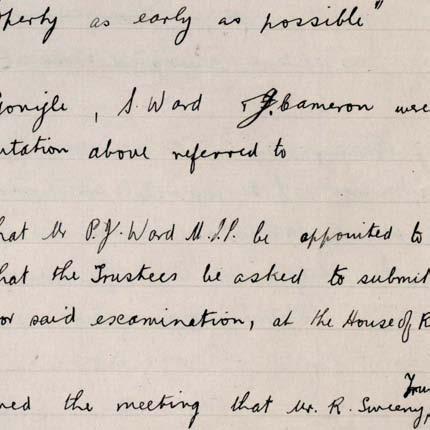 perty as early as possible"
Gonigle, S. Ward & J. Cameron were
utation above referred to
hat Mr P.J. Ward M.S.P. be appointed to
hat the Trustees be asked to submit
or said examination, at the House of R
Trus
ned the meeting that Mr. R. Sweeny,